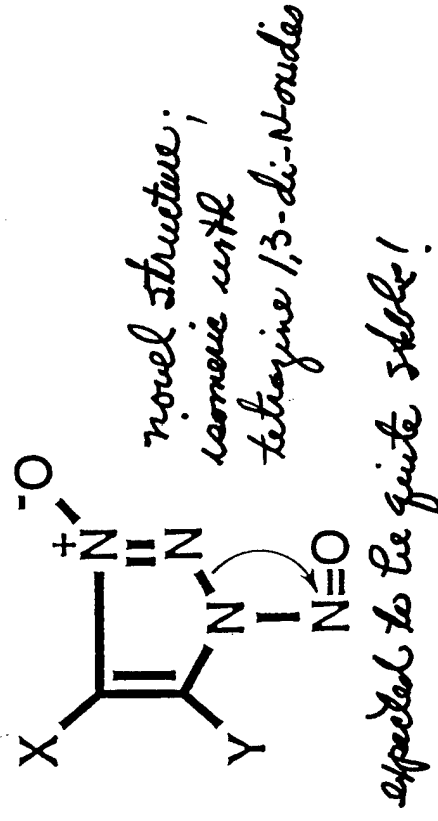 X
-O
+
N
N
Y
N
N=O
novel structure;
isomeric with
tetrazine 1,3-di-N-oxides
expected to be quite stable!